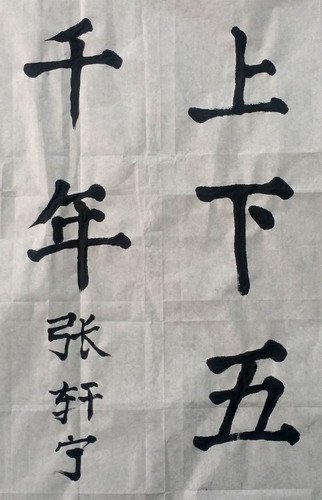 上下五
千年
张轩宁